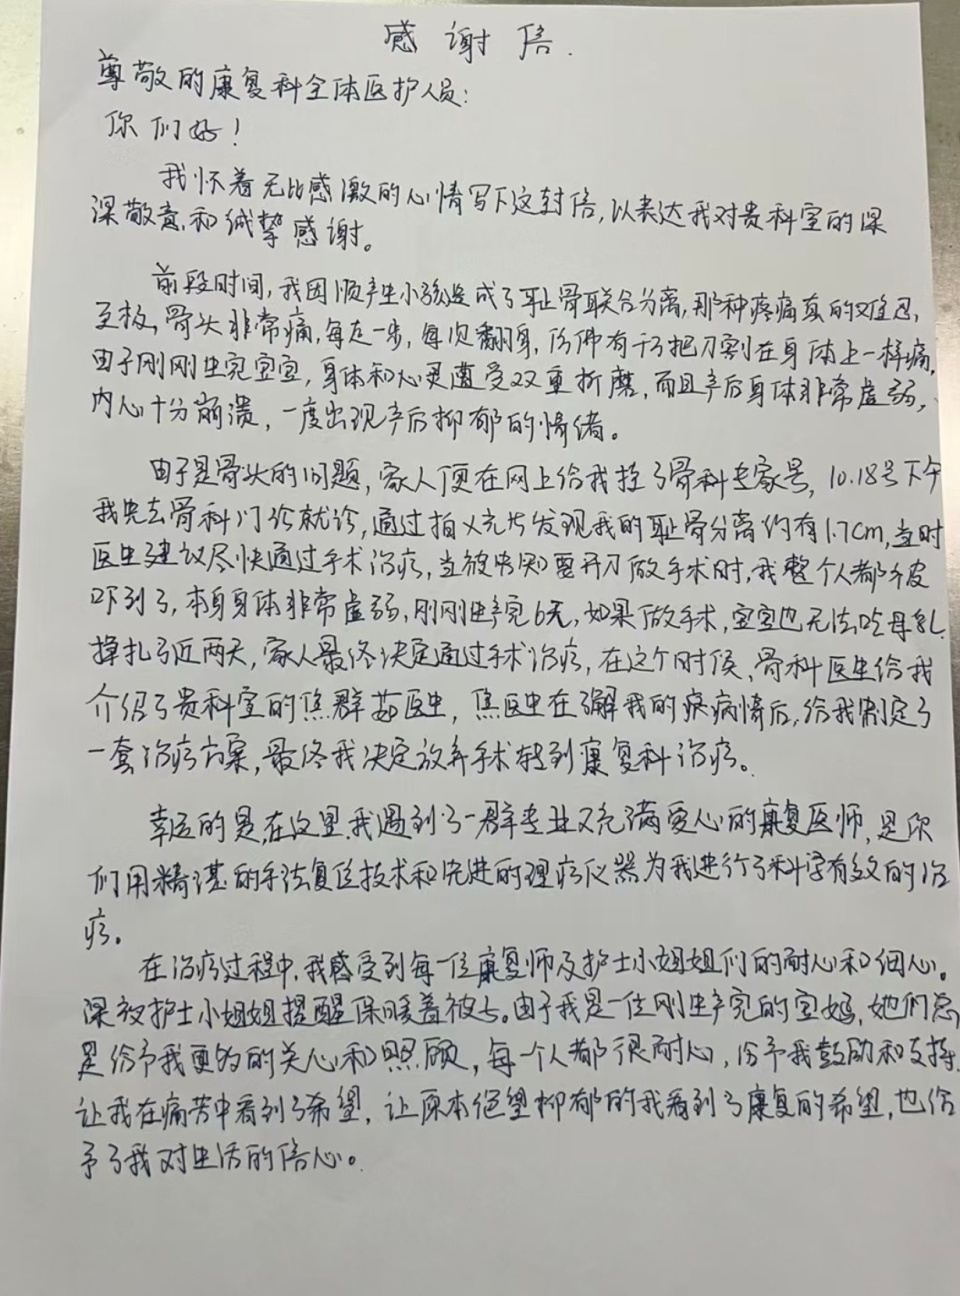 感谢信.
尊敬的康复科全体医护人员:
你们好!
我怀着无比感激的心情写下这封信,以表达我对贵科室的深
深敬意和诚挚感谢。
前段时间,我因顺产生小孩造成了耻骨联合分离,那种疼痛真的难忍,
至极,骨头非常痛,每走一步,每次翻身,仿佛有千万把刀割在身体上一样痛,
由于刚刚生完宝宝,身体和心灵遭受双重折磨,而且产后身体非常虚弱,
内心十分崩溃,一度出现产后抑郁的情绪。
由于是骨头的问题,家人便在网上给我挂了骨科专家号,10.18号下午
我先去骨科门诊就诊,通过拍X光片发现我的耻骨分离约有1.7cm,当时
医生建议尽快通过手术治疗,当被告知要开刀做手术时,我整个人都被
吓到了,本身身体非常虚弱,刚刚生产完6天,如果做手术,宝宝也无法吃母乳.
挣扎了近两天,家人最终决定通过手术治疗,在这个时候,骨科医生给我
介绍了贵科室的焦群茹医生,焦医生在了解我的疼病情后,给我制定了
一套治疗方案,最终我决定放弃手术转到康复科治疗。
幸运的是,在这里,我遇到了一群专业又充满爱心的康复医师,是你
们用精湛的手法复位技术和先进的理疗仪器为我进行了科学有效的治
疗。
在治疗过程中,我感受到每一位康复师及护士小姐姐们的耐心和细心。
深被护士小姐姐提醒保暖盖被子。由于我是一位刚生产完的宝妈,她们总
是给予我更多的关心和照顾,每一个人都很耐心,给予我鼓励和支持,
让我在痛苦中看到了希望,让原本绝望抑郁的我看到了康复的希望,也给
予了我对生活的信心。